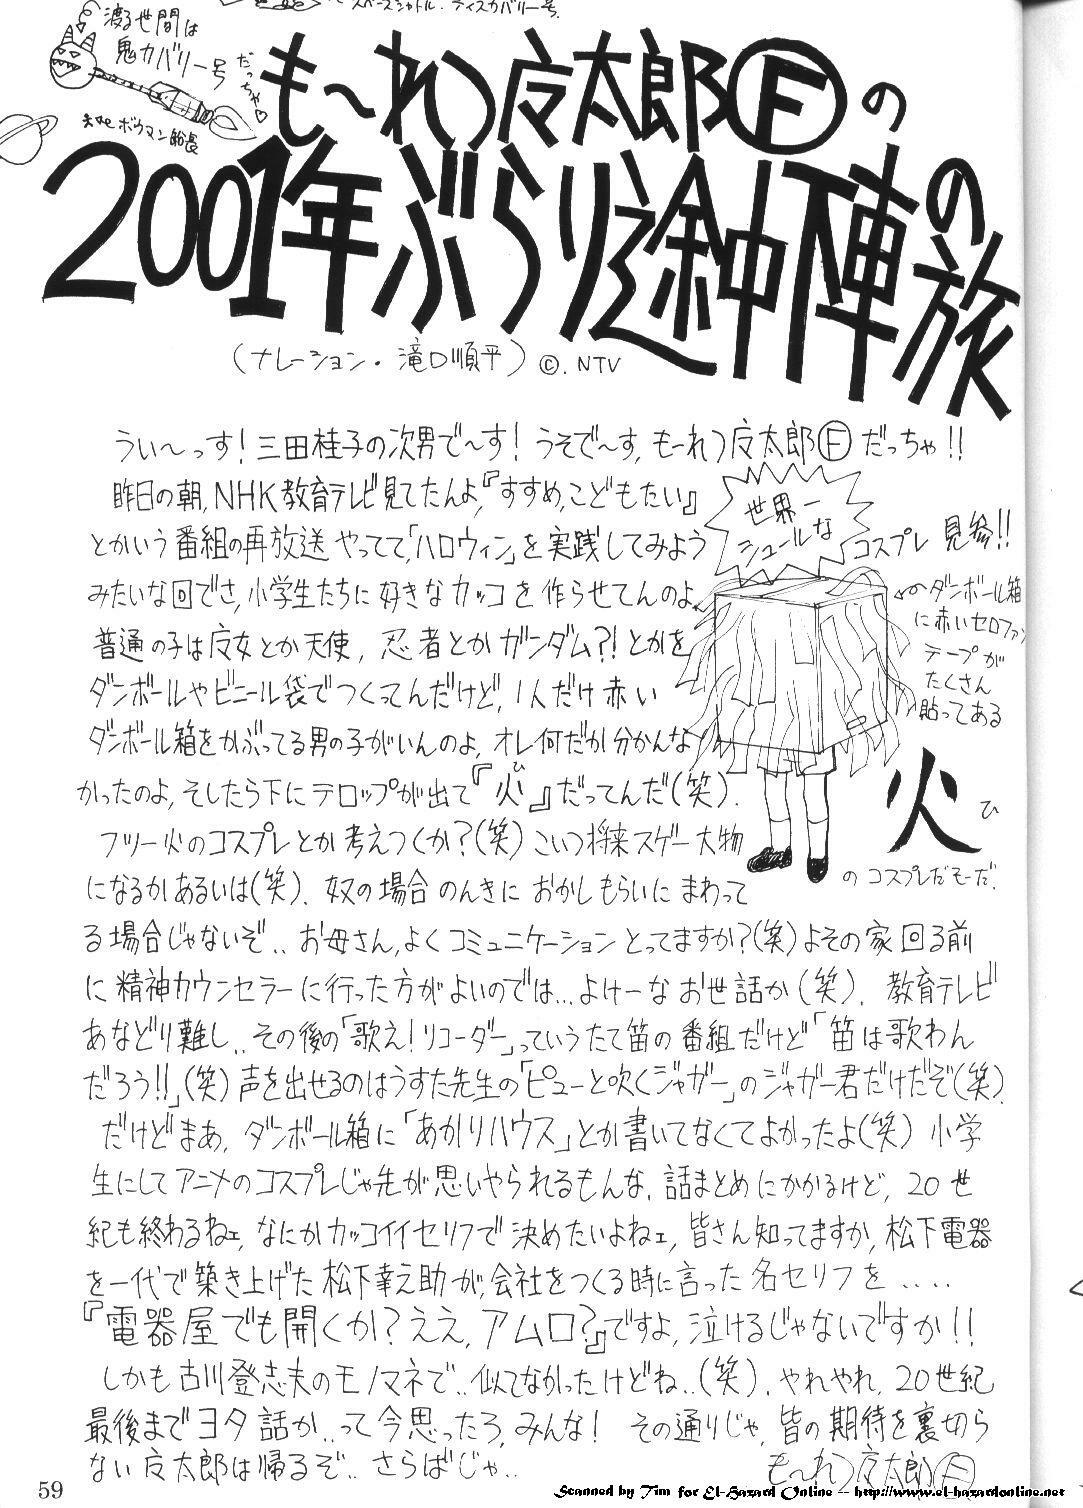 スペースシャトル・ディスカバリー号.
渡る世間は
鬼カバリー号
だっちゃ♡
ボウマン船長
も〜れつ亥太郎Ⓕの
2001年ぶらり途中下車の旅
(ナレーション・滝口順平)©.NTV
うぃ〜っす!三田桂子の次男で〜す!うそで〜す,も〜れつ亥太郎Ⓕだっちゃ!!
昨日の朝,NHK教育テレビ見てたんよ,『すすめ,こどもたい』
とかいう番組の再放送やってて,「ハロウィン」を実践してみよう
みたいな回でさ,小学生たちに好きなカッコを作らせてんのよ,
普通の子は魔女とか天使,忍者とかガンダム?!とかを
ダンボールやビニール袋でつくってんだけど,1人だけ赤い
ダンボール箱をかぶってる男の子がいんのよ,オレ何だか分かんな
かったのよ,そしたら下にテロップが出て『火』だってんだ(笑).
ひ
フツー火のコスプレとか考えつくか?(笑)こいつ将来スゲー大物
になるかあるいは(笑).奴の場合のんきにおかしもらいにまわって
る場合じゃないぞ..お母さん,よくコミュニケーションとってますか?(笑)よその家回る前
に精神カウンセラーに行った方がよいのでは...よけーなお世話か(笑).教育テレビ
あなどり難し..その後の「歌え!リコーダー」っていうたて笛の番組だけど「笛は歌わん
だろう!!」(笑)声を出せるのはうすた先生の「ピューと吹くジャガー」のジャガー君だけだぞ(笑).
だけどまあ,ダンボール箱に「あかりハウス」とか書いてなくてよかったよ(笑)小学
生にしてアニメのコスプレじゃ先が思いやられるもんな.話まとめにかかるけど,20世
紀も終わるねェ,なにかカッコイイセリフで決めたいよねェ,皆さん知ってますか,松下電器
を一代で築き上げた松下幸之助が,会社をつくる時に言った名セリフを....
『電器屋でも開くか?ええ,アムロ?』ですよ,泣けるじゃないですか!!
しかも古川登志夫のモノマネで..似てなかったけどね..(笑).やれやれ,20世紀
最後までヨタ話か..って今思ったろ,みんな! その通りじゃ,皆の期待を裏切ら
ない亥太郎は帰るぞ..さらばじゃ..
も〜れつ亥太郎Ⓕ
世界一
シュールな
コスプレ見参!!
←ダンボール箱
に赤いセロファン
テープが
たくさん
貼ってある
火
ひ
のコスプレだそーだ.
59
Scanned by Tim for El-Hazard Online -- http://www.el-hazardonline.net